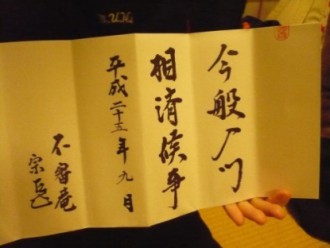 今般入門
相済候事
平成二十五年九月
不審菴
宗